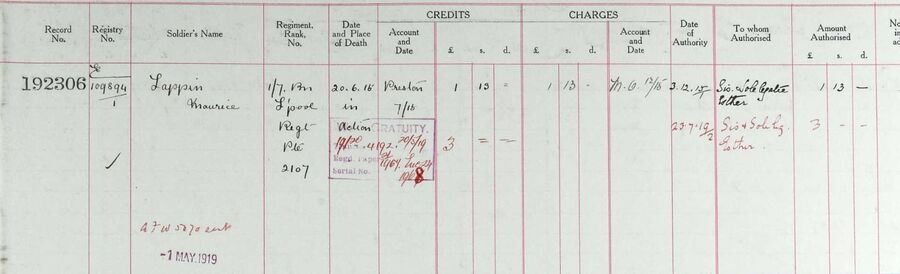 CREDITS CHARGES
Record No. Registry No. Soldier's Name Regiment, Rank, No. Date and Place of Death Account and Date £ s. d. £ s. d. Account and Date Date of Authority To whom Authorised Amount Authorised £ s. d.
E
192306 109894 Lappin 1/7. Bn 20.6.15 Preston 1 13 = 1 13 - 3.12.15 Sis. Sole Legatee 1 13 -
1 Maurice L'pool in 7/15 Esther
Regt Action GRATUITY. 23.7.19 Sis & Sole Leg. 3 - -
Pte 19/20 4192. 3 = = Esther.
2107 Regd. Paper
Serial No.
A F W 5070 sent
-1 MAY 1919